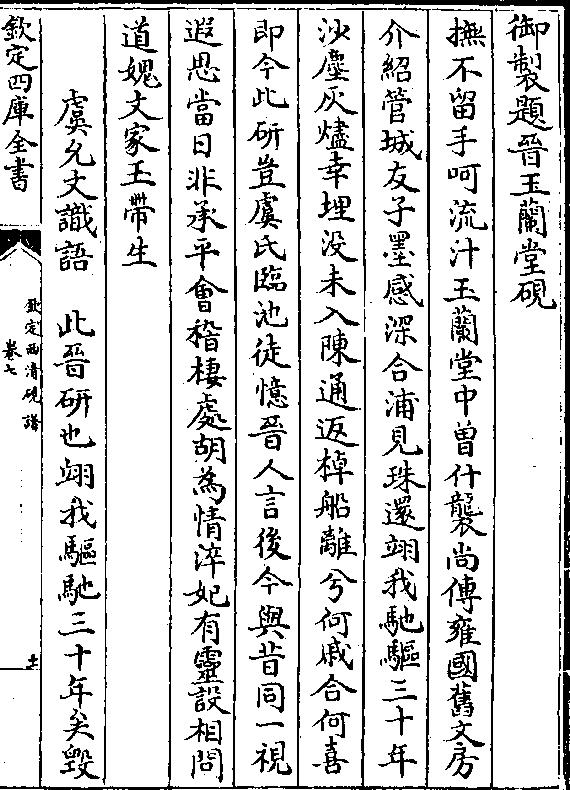 御製題晉玉蘭堂硯
撫不留手呵流汁玉蘭堂中曽什襲尚傳雍國舊文房
介紹管城友子墨感深合浦見珠還翊我馳驅三十年
沙塵灰燼幸埋没未入陳通返棹船離兮何戚合何喜
即今此硏豈虞氏臨池徒憶晉人言後今與昔同一視
遐思當日非承平會稽棲處胡為情淬妃有靈設相問
道媿文家玉帶生
虞允文識語　此晉硏也翊我驅馳三十年矣毁
欽定四庫全書
欽定西清硯譜
卷七
十一